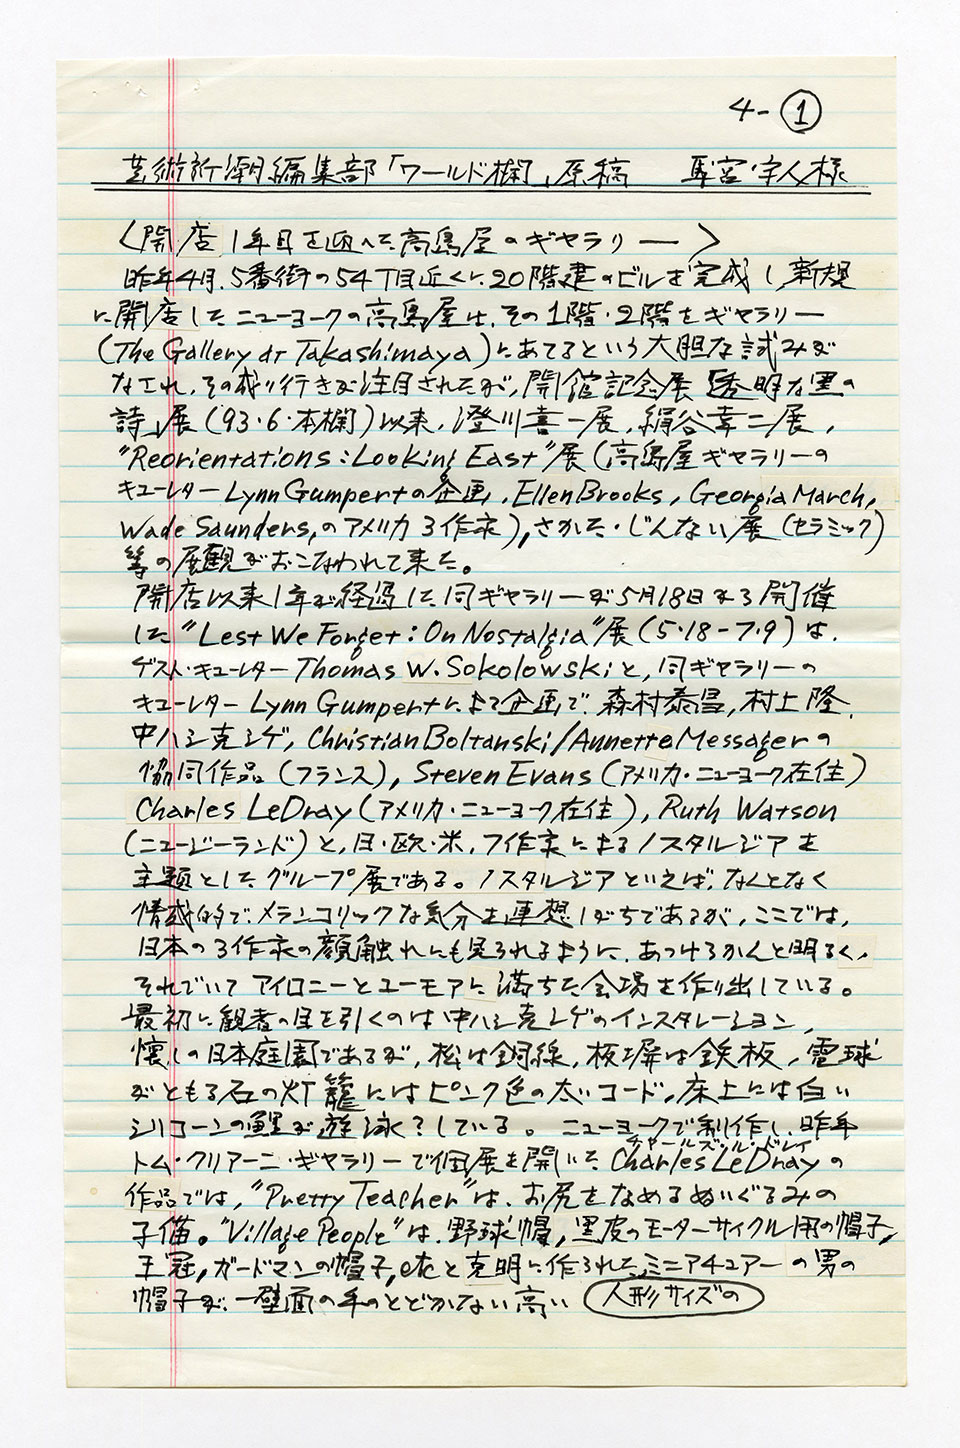 4-①
芸術新潮編集部「ワールド欄」原稿
〈開店1年目を迎へた高島屋のギャラリー〉
昨年4月、5番街の54丁目近くに20階建のビルを完成し、新規
に開店したニューヨークの高島屋は、その1階・2階をギャラリー
(The Gallery at Takashimaya)にあてるという大胆な試みが
なされ、その成り行きが注目されたが、開館記念展「透明な黒の
詩」展(93・6・本欄)以来、澄川喜一展、絹谷幸二展、
"Reorientations: Looking East"展(高島屋ギャラリーの
キューレターLynn Gumpertの企画、Ellen Brooks, Georgia March,
Wade Saunders,のアメリカ3作家),さかた・じんない展(セラミック)
等の展観がおこなわれて来た。
開店以来1年が経過した同ギャラリーが5月18日より開催
した"Lest We Forget: On Nostalgia"展(5・18-7・9)は、
ゲスト・キューレターThomas W. Sokolowskiと、同ギャラリーの
キューレターLynn Gumpertによる企画で、森村泰昌,村上隆,
中ハシ克シゲ, Christian Boltanski/Annette Messagerの
協同作品(フランス), Steven Evans(アメリカ・ニューヨーク在住)
Charles LeDray(アメリカ・ニューヨーク在住), Ruth Watson
(ニュージーランド)と、日・欧・米、7作家によるノスタルジアを
主題としたグループ展である。ノスタルジアといえば、なんとなく
情感的で、メランコリックな気分を連想しがちであるが、ここでは、
日本の3作家の顔触れにも見られるように、あっけらかんと明るく、
それでいてアイロニーとユーモアに満ちた会場を作り出している。
最初に観者の目を引くのは中ハシ克シゲのインスタレーション、
懐しの日本庭園であるが、松は銅線、板塀は鉄板、電球
がともる石の灯籠にはピンク色の太いコード、床上には白い
シリコーンの鯉が遊泳?している。ニューヨークで制作し、昨年
トム・クリアーニ・ギャラリーで個展を開いたCharles LeDrayの
チャールズ・ル・ドレイ
作品では、"Pretty Teacher"は、お尻をなめるぬいぐるみの
子猫。"Village People"は、野球帽,黒皮のモーターサイクル用の帽子,
王冠,ガードマンの帽子,etcと克明に作られた,ミニアチュアーの男の
帽子が、一壁面の手のとどかない高い 人形サイズの